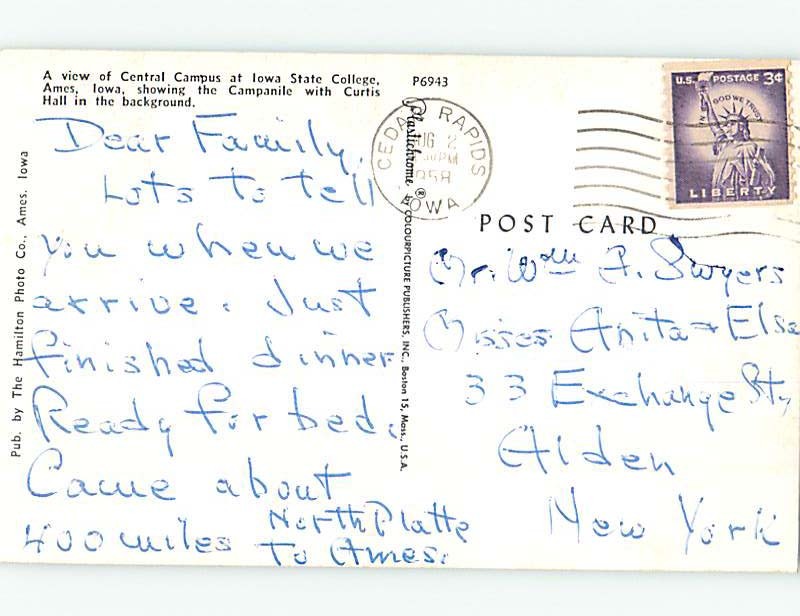 A view of Central Campus at Iowa State College,
Ames, Iowa, showing the Campanile with Curtis
Hall in the background.
P6943
Pub. by The Hamilton Photo Co., Ames, Iowa
Dear Family,
Lots to tell
you when we
arrive. Just
finished dinner
Ready for bed.
Came about
400 miles North Platte
to Ames.
Plastichrome ® by COLOURPICTURE PUBLISHERS, INC., Boston 15, Mass., U.S.A.
CEDAR RAPIDS
AUG 2
PM
1958
IOWA
U.S. POSTAGE 3¢
IN GOD WE TRUST
LIBERTY
POST CARD
Mr. Wm F. Swyers
Misses Anita + Elsa
33 Exchange St,
Alden
New York